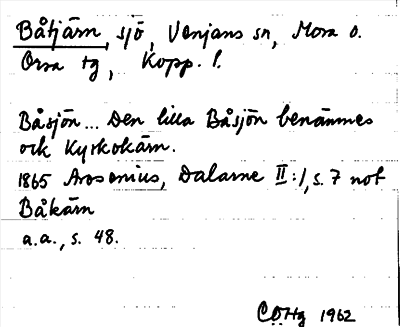 Båtjärn, sjö, Venjans sn, Mora o.
Orsa tg, Kopp. l.
Båsjön... Den lilla Båsjön benämnes
ock Kyrkokärn.
1865 Arosenius, Dalarne II:1, s. 7 not
Båkärn
a.a., s. 48.
COHg 1962